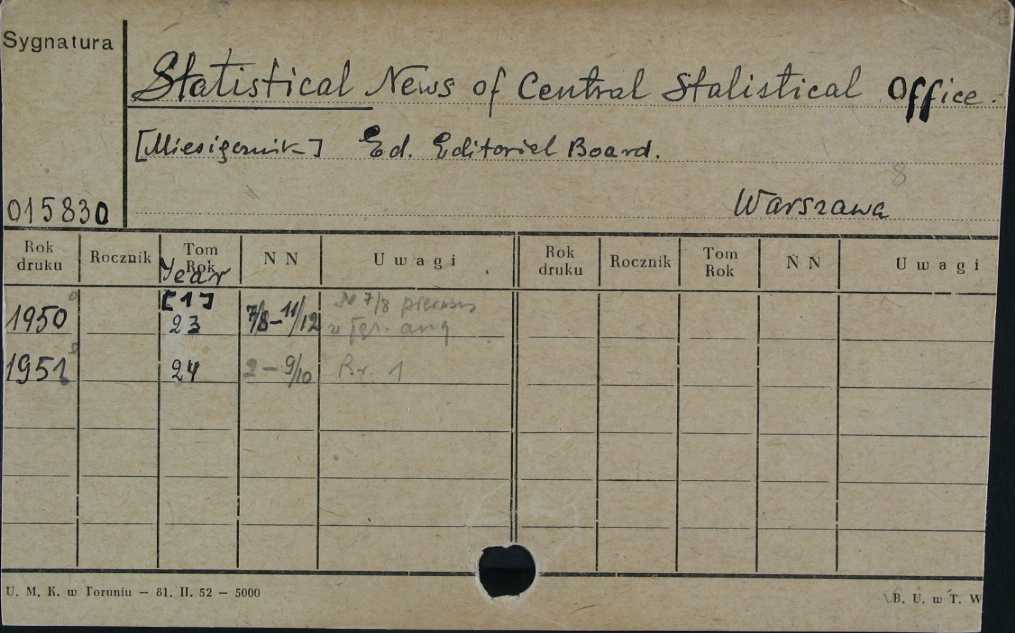 Sygnatura
Statistical News of Central Statistical Office.
[Miesięcznik] Ed. Editorial Board.
8
015830
Warszawa
Rok druku Rocznik Tom Rok Year N N Uwagi Rok druku Rocznik Tom Rok N N Uwagi
1950 [1] 23 7/8-11/12 № 7/8 pierwszy
w jęz. ang
1951 24 2-9/10 Br. 1
U. M. K. w Toruniu — 81. II. 52 — 5000
B. U. w T. W